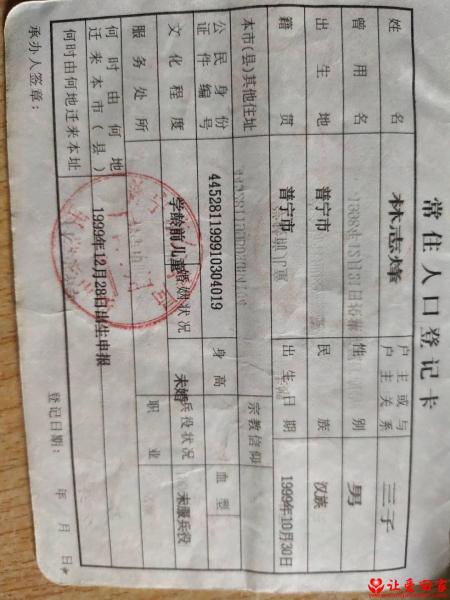 常住人口登记卡
姓名 林志烽 户主或与户主关系 三子
曾用名 性别 男
出生地 普宁市 民族 汉族
籍贯 普宁市 出生日期 1999年10月30日
本市(县)其他住址 宗教信仰
公民身份证件编号 445281199910304019 身高 血型
文化程度 学龄前儿童 婚姻状况 未婚 兵役状况 未服兵役
服务处所 职业
何时由何地迁来本市(县) 1999年12月28日出生申报
何时由何地迁来本址
承办人签章: 登记日期: 年 月 日
让爱回家